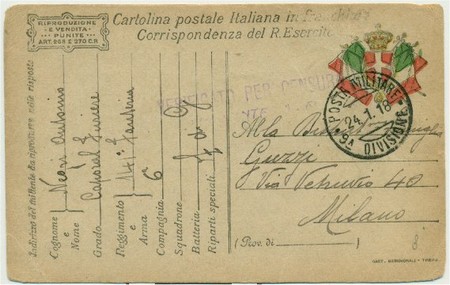 RIPRODUZIONE
E VENDITA
PUNITE
ART. 965 E 270 C.P.
Cartolina postale Italiana in Franchigia
Corrispondenza del R. Esercito
VERIFICATO PER CENSURA
POSTA MILITARE
24.1.18
9A DIVISIONE
Indirizzo del mittente da riprodurre nella risposta
Cognome e Nome Neari Antonio
Grado Caporal
Reggimento e Arma 14° Fanteria
Compagnia 6
Squadrone
Batteria
Riparti speciali
Alla
Guzzi
Via Vetruvio 40
Milano
(Prov. di )